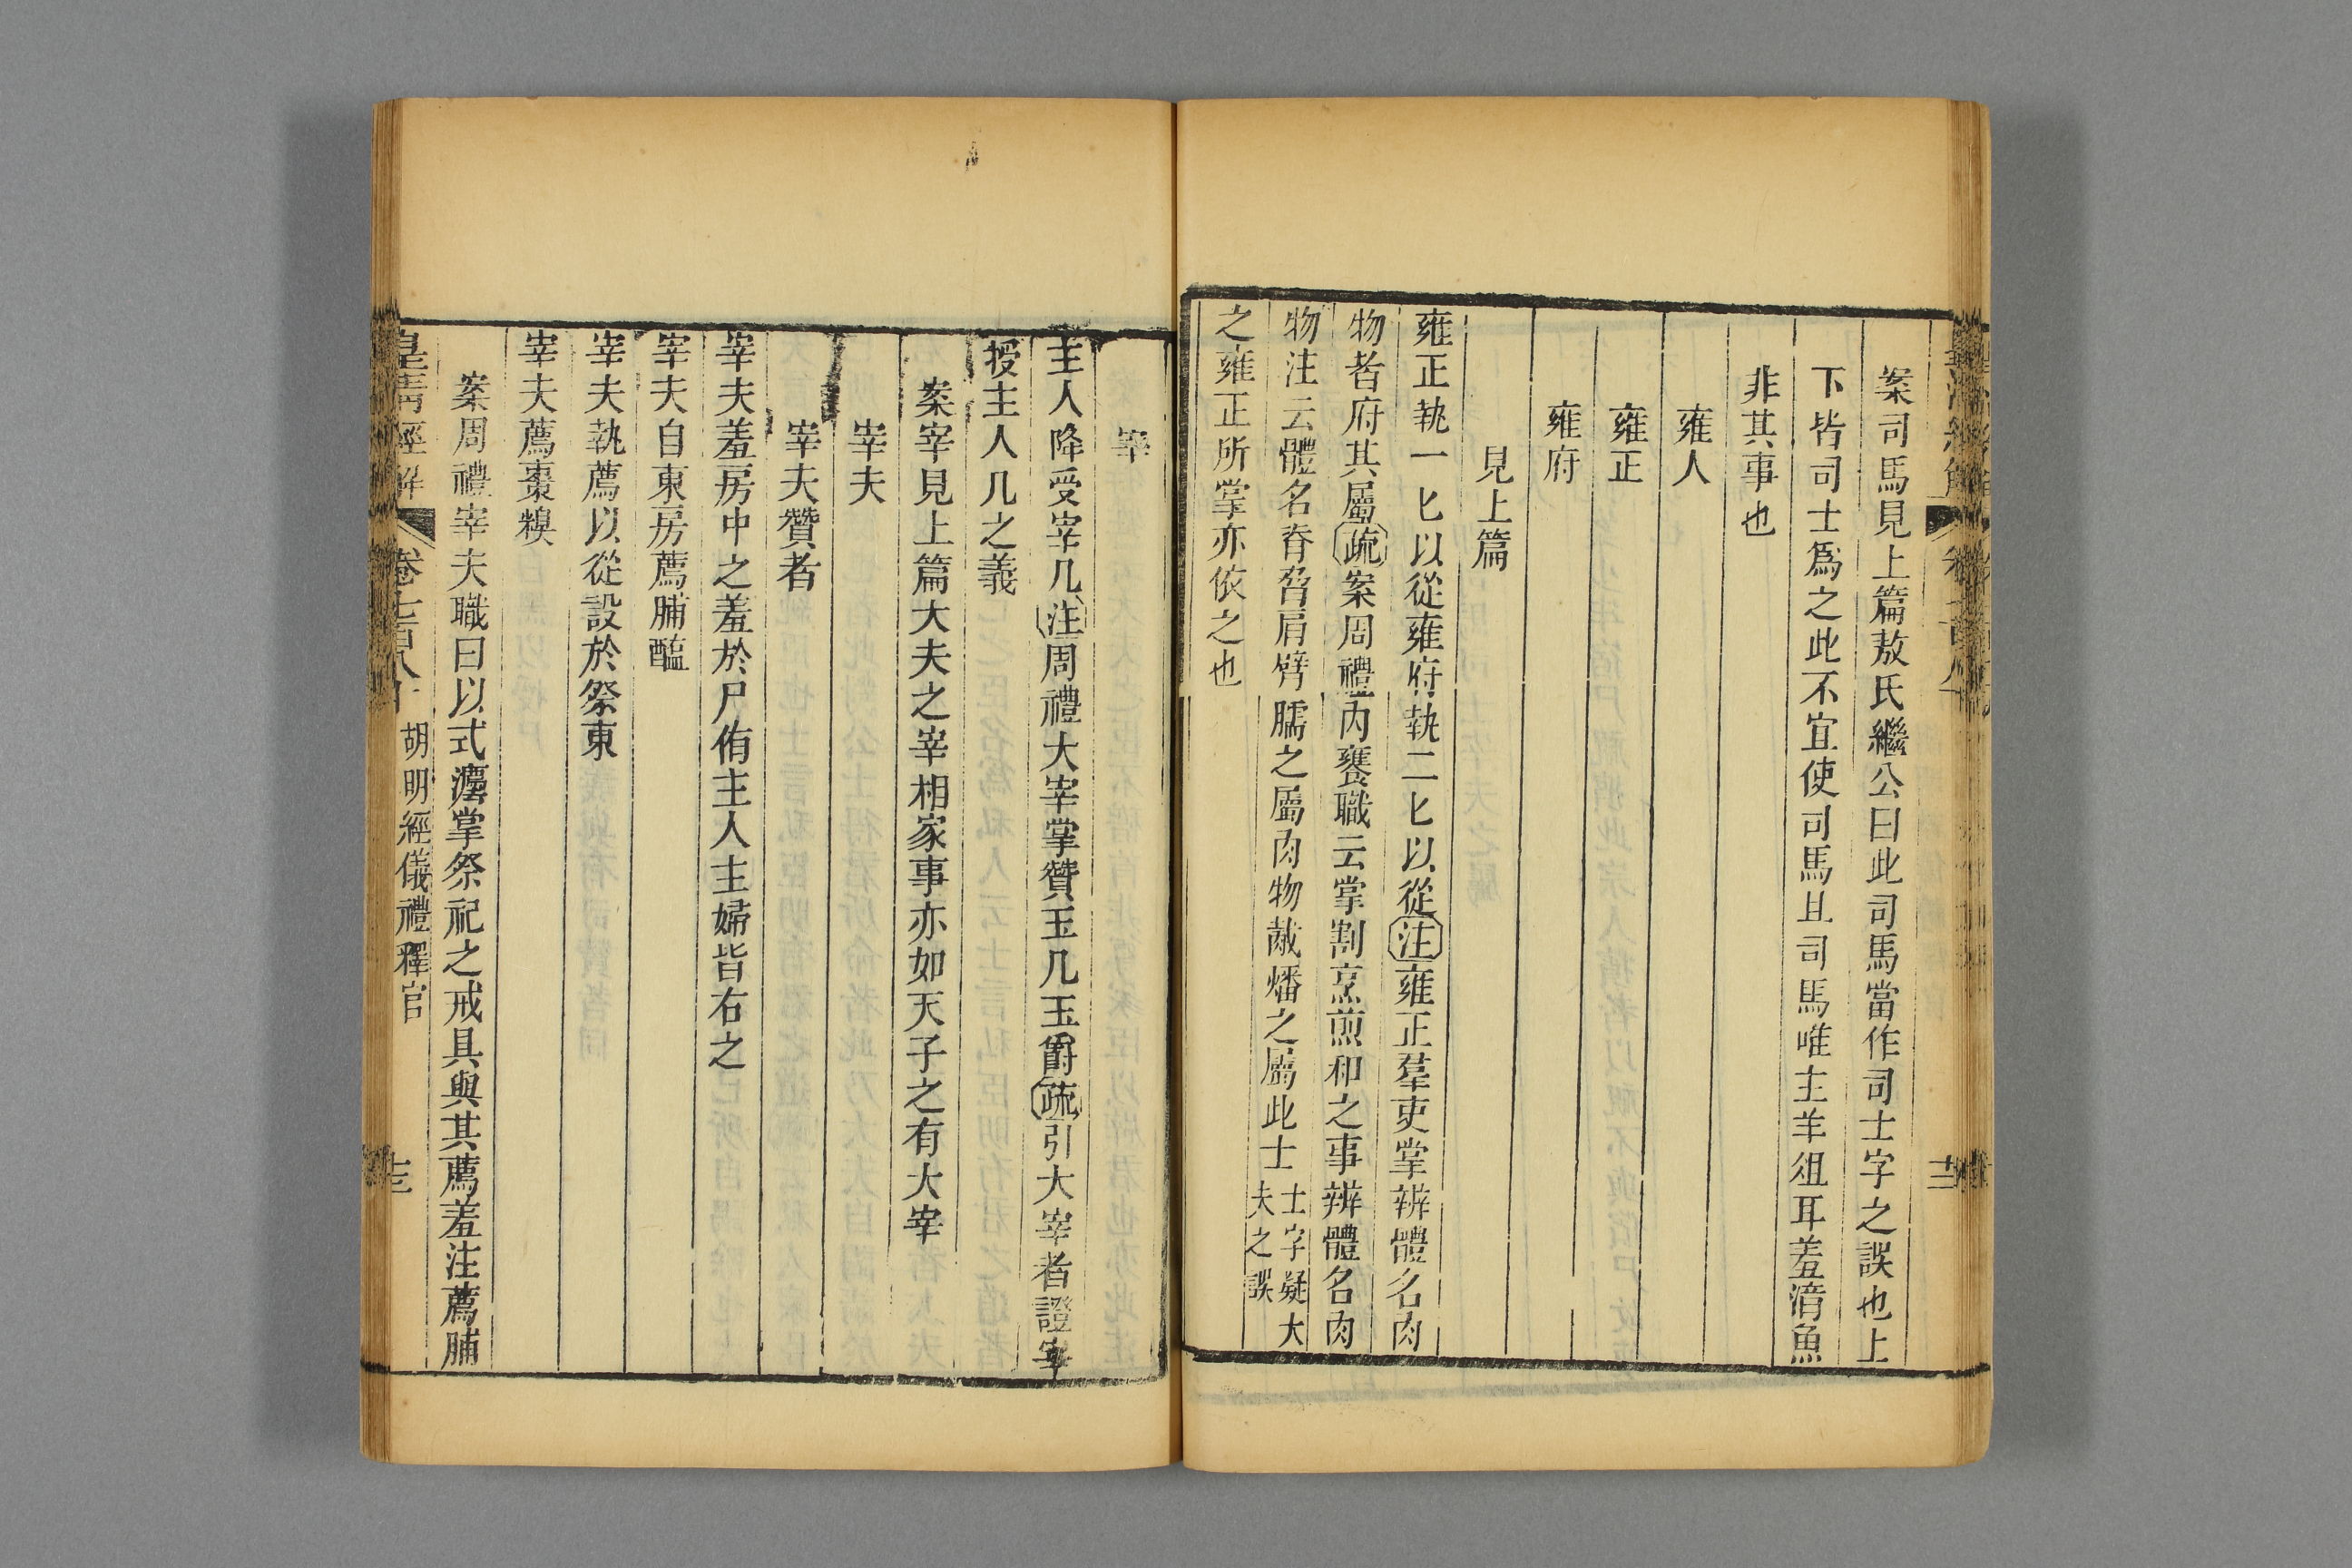 案司馬見上篇敖氏繼公曰此司馬當作司士字之誤也上
下皆司士爲之此不宜使司馬且司馬唯主羊俎耳羞湇魚
非其事也
雍人
雍正
雍府
見上篇
雍正執一匕以從雍府執二匕以從注雍正羣吏掌辨體名肉
物者府其屬疏案周禮内饔職云掌割烹煎和之事辨體名肉
物注云體名脊脅肩臂臑之屬肉物胾燔之屬此士士字疑大
夫之誤
之雍正所掌亦依之也
宰
主人降受宰几注周禮大宰掌贊玉几玉爵疏引大宰者證宰
授主人几之義
案宰見上篇大夫之宰相家事亦如天子之有大宰
宰夫
宰夫贊者
宰夫羞房中之羞於尸侑主人主婦皆右之
宰夫自東房薦脯醢
宰夫執薦以從設於祭東
宰夫薦棗糗
案周禮宰夫職曰以式灋掌祭祀之戒具與其薦羞注薦脯
皇清經解 卷七百八十 胡明經儀禮釋官